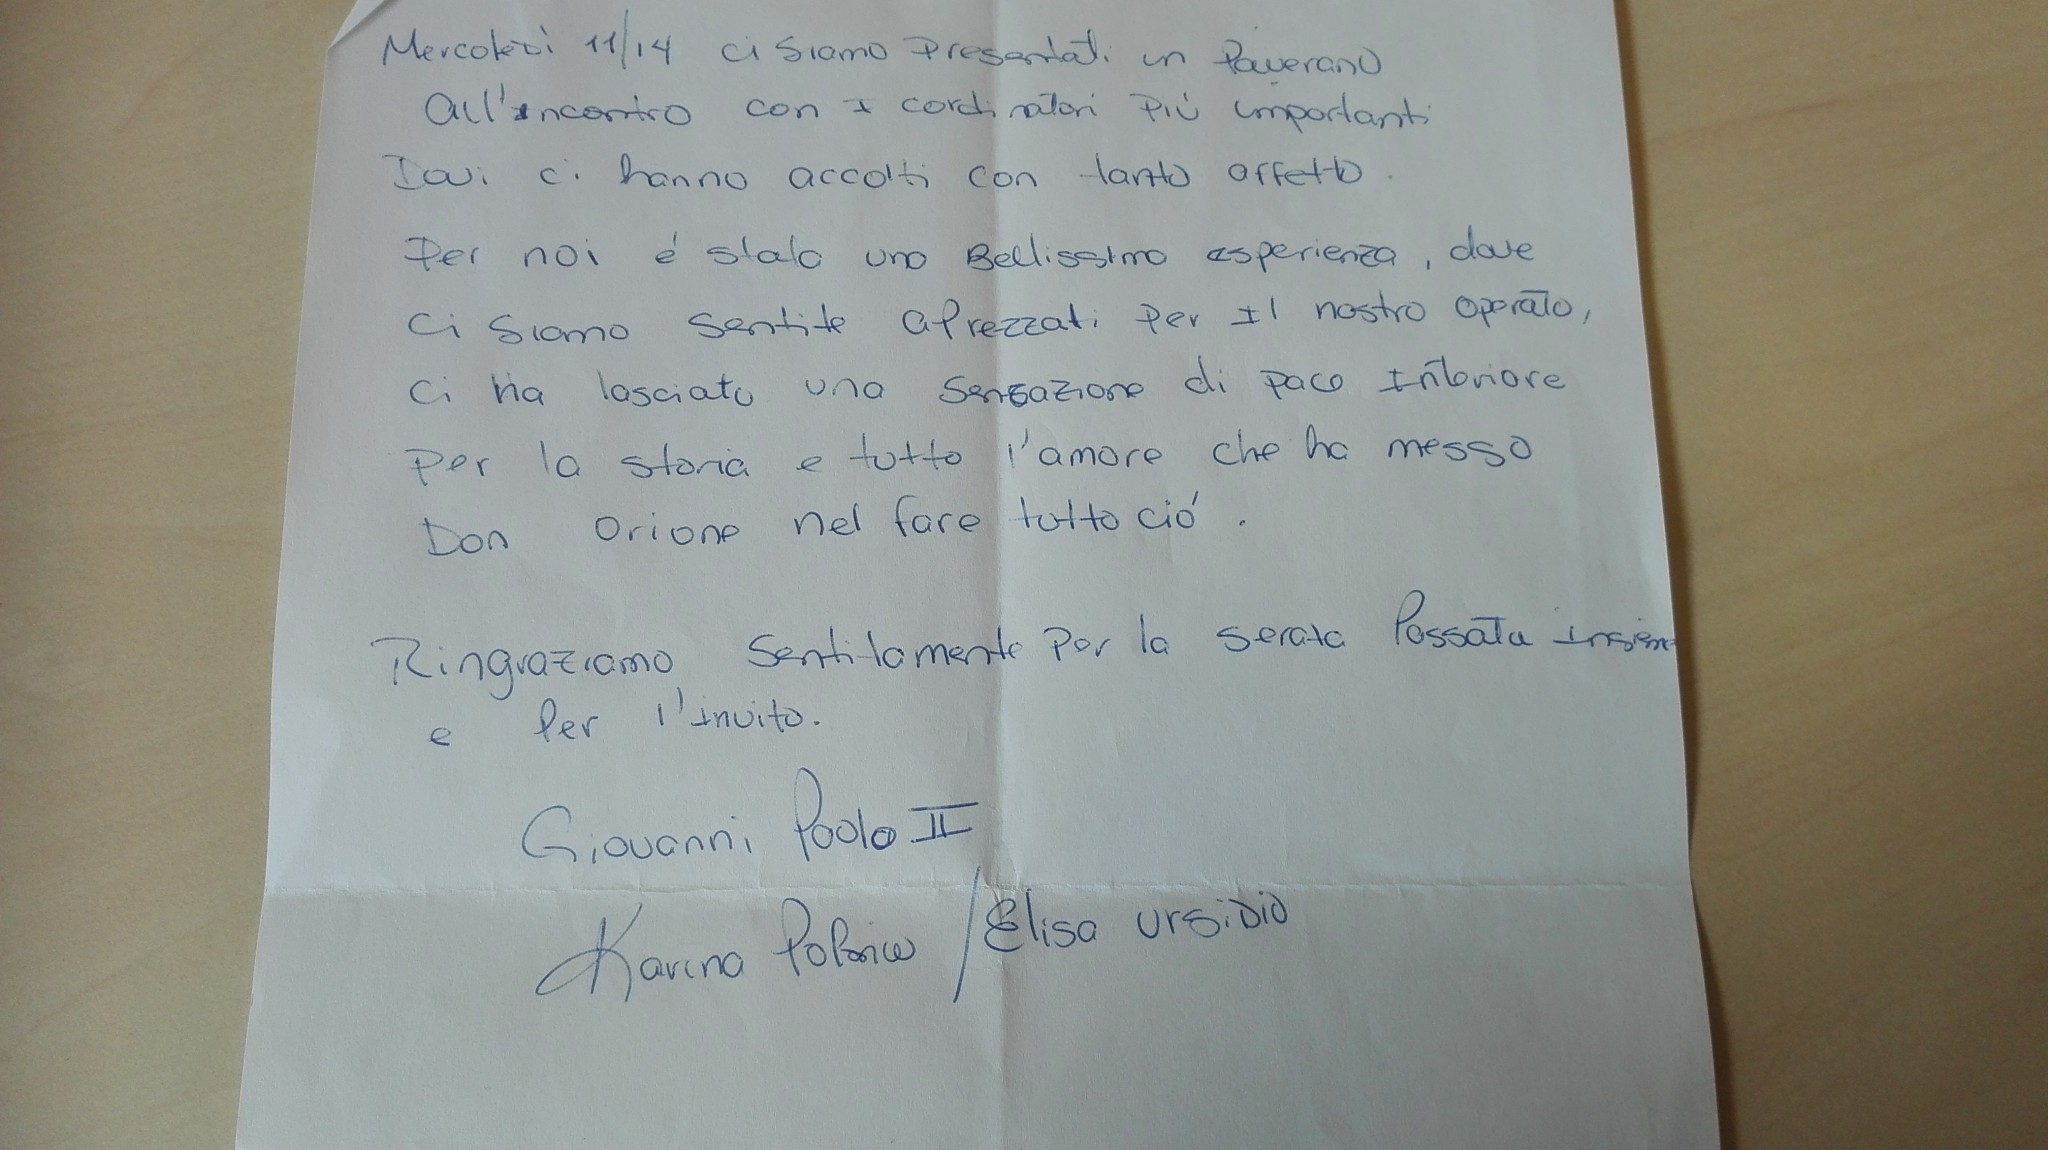 Mercoledì 11/14 ci siamo Presentati in Paverano
All'incontro con I cordinatori Più importanti
Dovi ci hanno accolti con tanto affetto.
Per noi é stato una Bellissimo esperienza, dove
ci siamo sentite aprezzati Per Il nostro operato,
ci ha lasciato una sensazione di pace Interiore
Per la storia e tutto l'amore che ha messo
Don Orione nel fare tutto ció.
Ringraziamo Sentitamente Per la serata Passata Insieme
e Per l'Invito.
Giovanni Paolo II
Karina / Elisa Ursidio